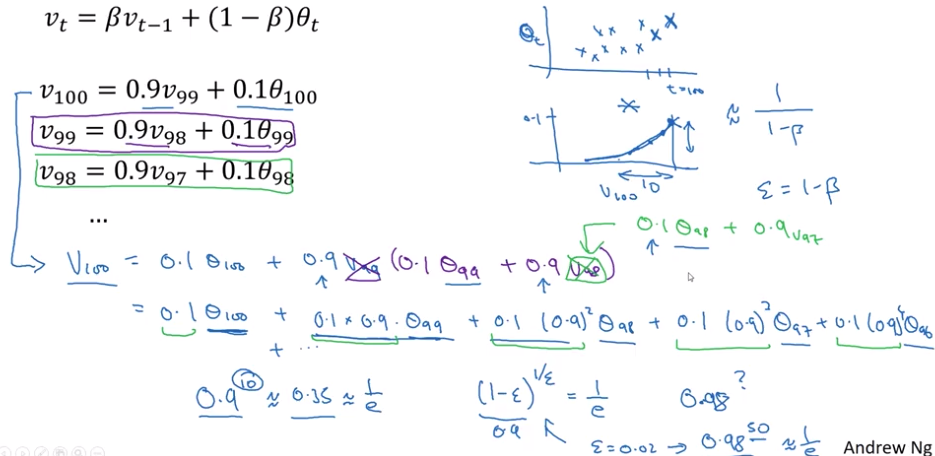 v_t = βv_{t−1} + (1 − β)θ_t
θ_t
t=100
v_100 = 0.9v_99 + 0.1θ_100
v_99 = 0.9v_98 + 0.1θ_99
v_98 = 0.9v_97 + 0.1θ_98
...
0.1
V_100
10
≈ 1/(1−β)
ε = 1−β
0.1 θ_98 + 0.9 v_97
V_100 = 0.1 θ_100 + 0.9 v_99 (0.1 θ_99 + 0.9 v_98)
= 0.1 θ_100 + 0.1 × 0.9 · θ_99 + 0.1 (0.9)² θ_98 + 0.1 (0.9)³ θ_97 + 0.1 (0.9)⁴ θ_96
+ ...
0.9^10 ≈ 0.35 ≈ 1/e
(1−ε)^{1/ε} = 1/e
0.9
0.98^?
ε = 0.02 → 0.98^50 ≈ 1/e
Andrew Ng